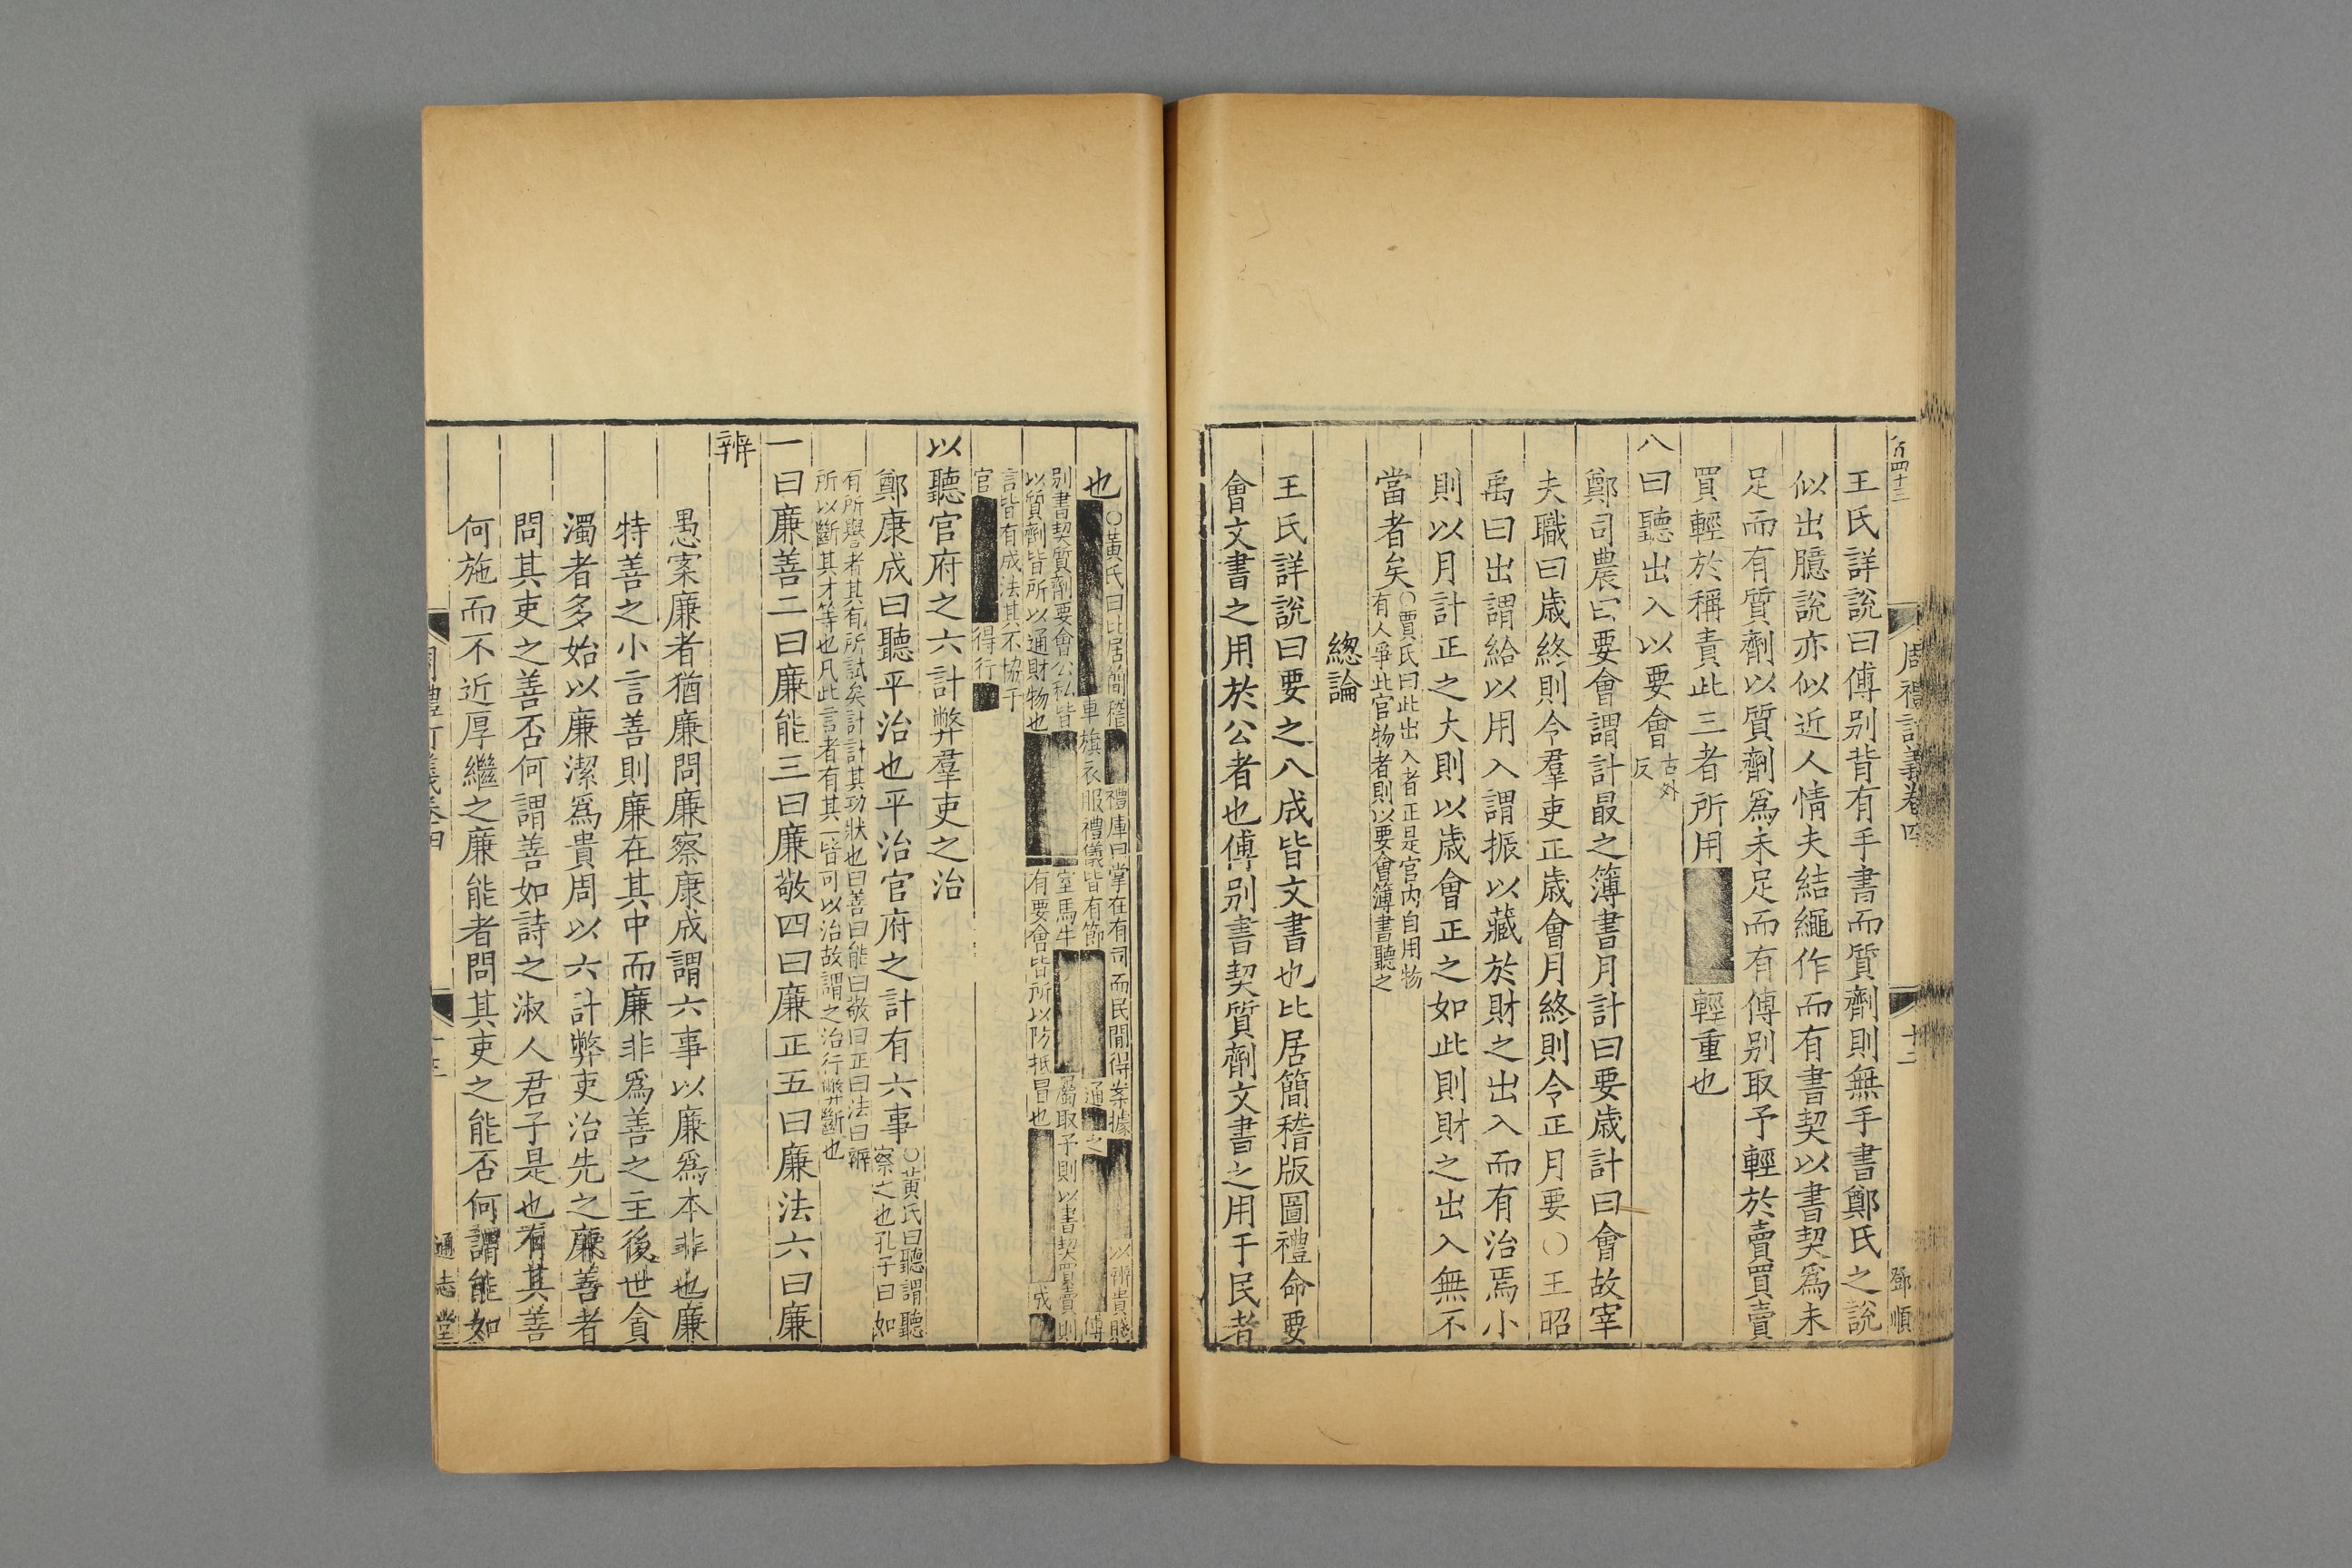 周禮訂義卷四
十二
鄧順
王氏詳説曰傅别背有手書而質劑則無手書鄭氏之説
似出臆説亦似近人情夫結繩作而有書契以書契爲未
足而有質劑以質劑爲未足而有傅别取予輕於賣買賣
買輕於稱責此三者所用
輕重也
八曰聽出入以要會
古外
反
鄭司農曰要會謂計最之簿書月計曰要歳計曰會故宰
夫職曰歳終則令羣吏正歳會月終則令正月要○王昭
禹曰出謂給以用入謂振以藏於財之出入而有治焉小
則以月計正之大則以歳會正之如此則財之出入無不
當者矣
○賈氏曰此出入者正是官内自用物
有人爭此官物者則以要會簿書聽之
總論
王氏詳説曰要之八成皆文書也比居簡稽版圖禮命要
會文書之用於公者也傅别書契質劑文書之用于民者
也
○黄氏曰比居簡稽
禮庫曰掌在有司而民間得案據
以辨貴賤
車旗衣服禮儀皆有節
通
之
傅
别書契質劑要會公私皆
室馬牛
屬取予則以書契買賣則
以質劑皆所以通財物也
有要會皆所以防抵冒也
成
言皆有成法其不協于
官
得行
以聽官府之六計弊羣吏之治
鄭康成曰聽平治也平治官府之計有六事
○黄氏曰聽謂聽
察之也孔子曰如
有所譽者其有所試矣計計其功狀也曰善曰能曰敬曰正曰法曰辨
所以斷其才等也凡此言者有其一皆可以治故謂之治行弊斷也
一曰廉善二曰廉能三曰廉敬四曰廉正五曰廉法六曰廉
辨
愚案廉者猶廉問廉察康成謂六事以廉爲本非也廉
特善之小言善則廉在其中而廉非爲善之主後世貪
濁者多始以廉潔爲貴周以六計弊吏治先之廉善者
問其吏之善否何謂善如詩之淑人君子是也有其善
何施而不近厚繼之廉能者問其吏之能否何謂能如
通志堂